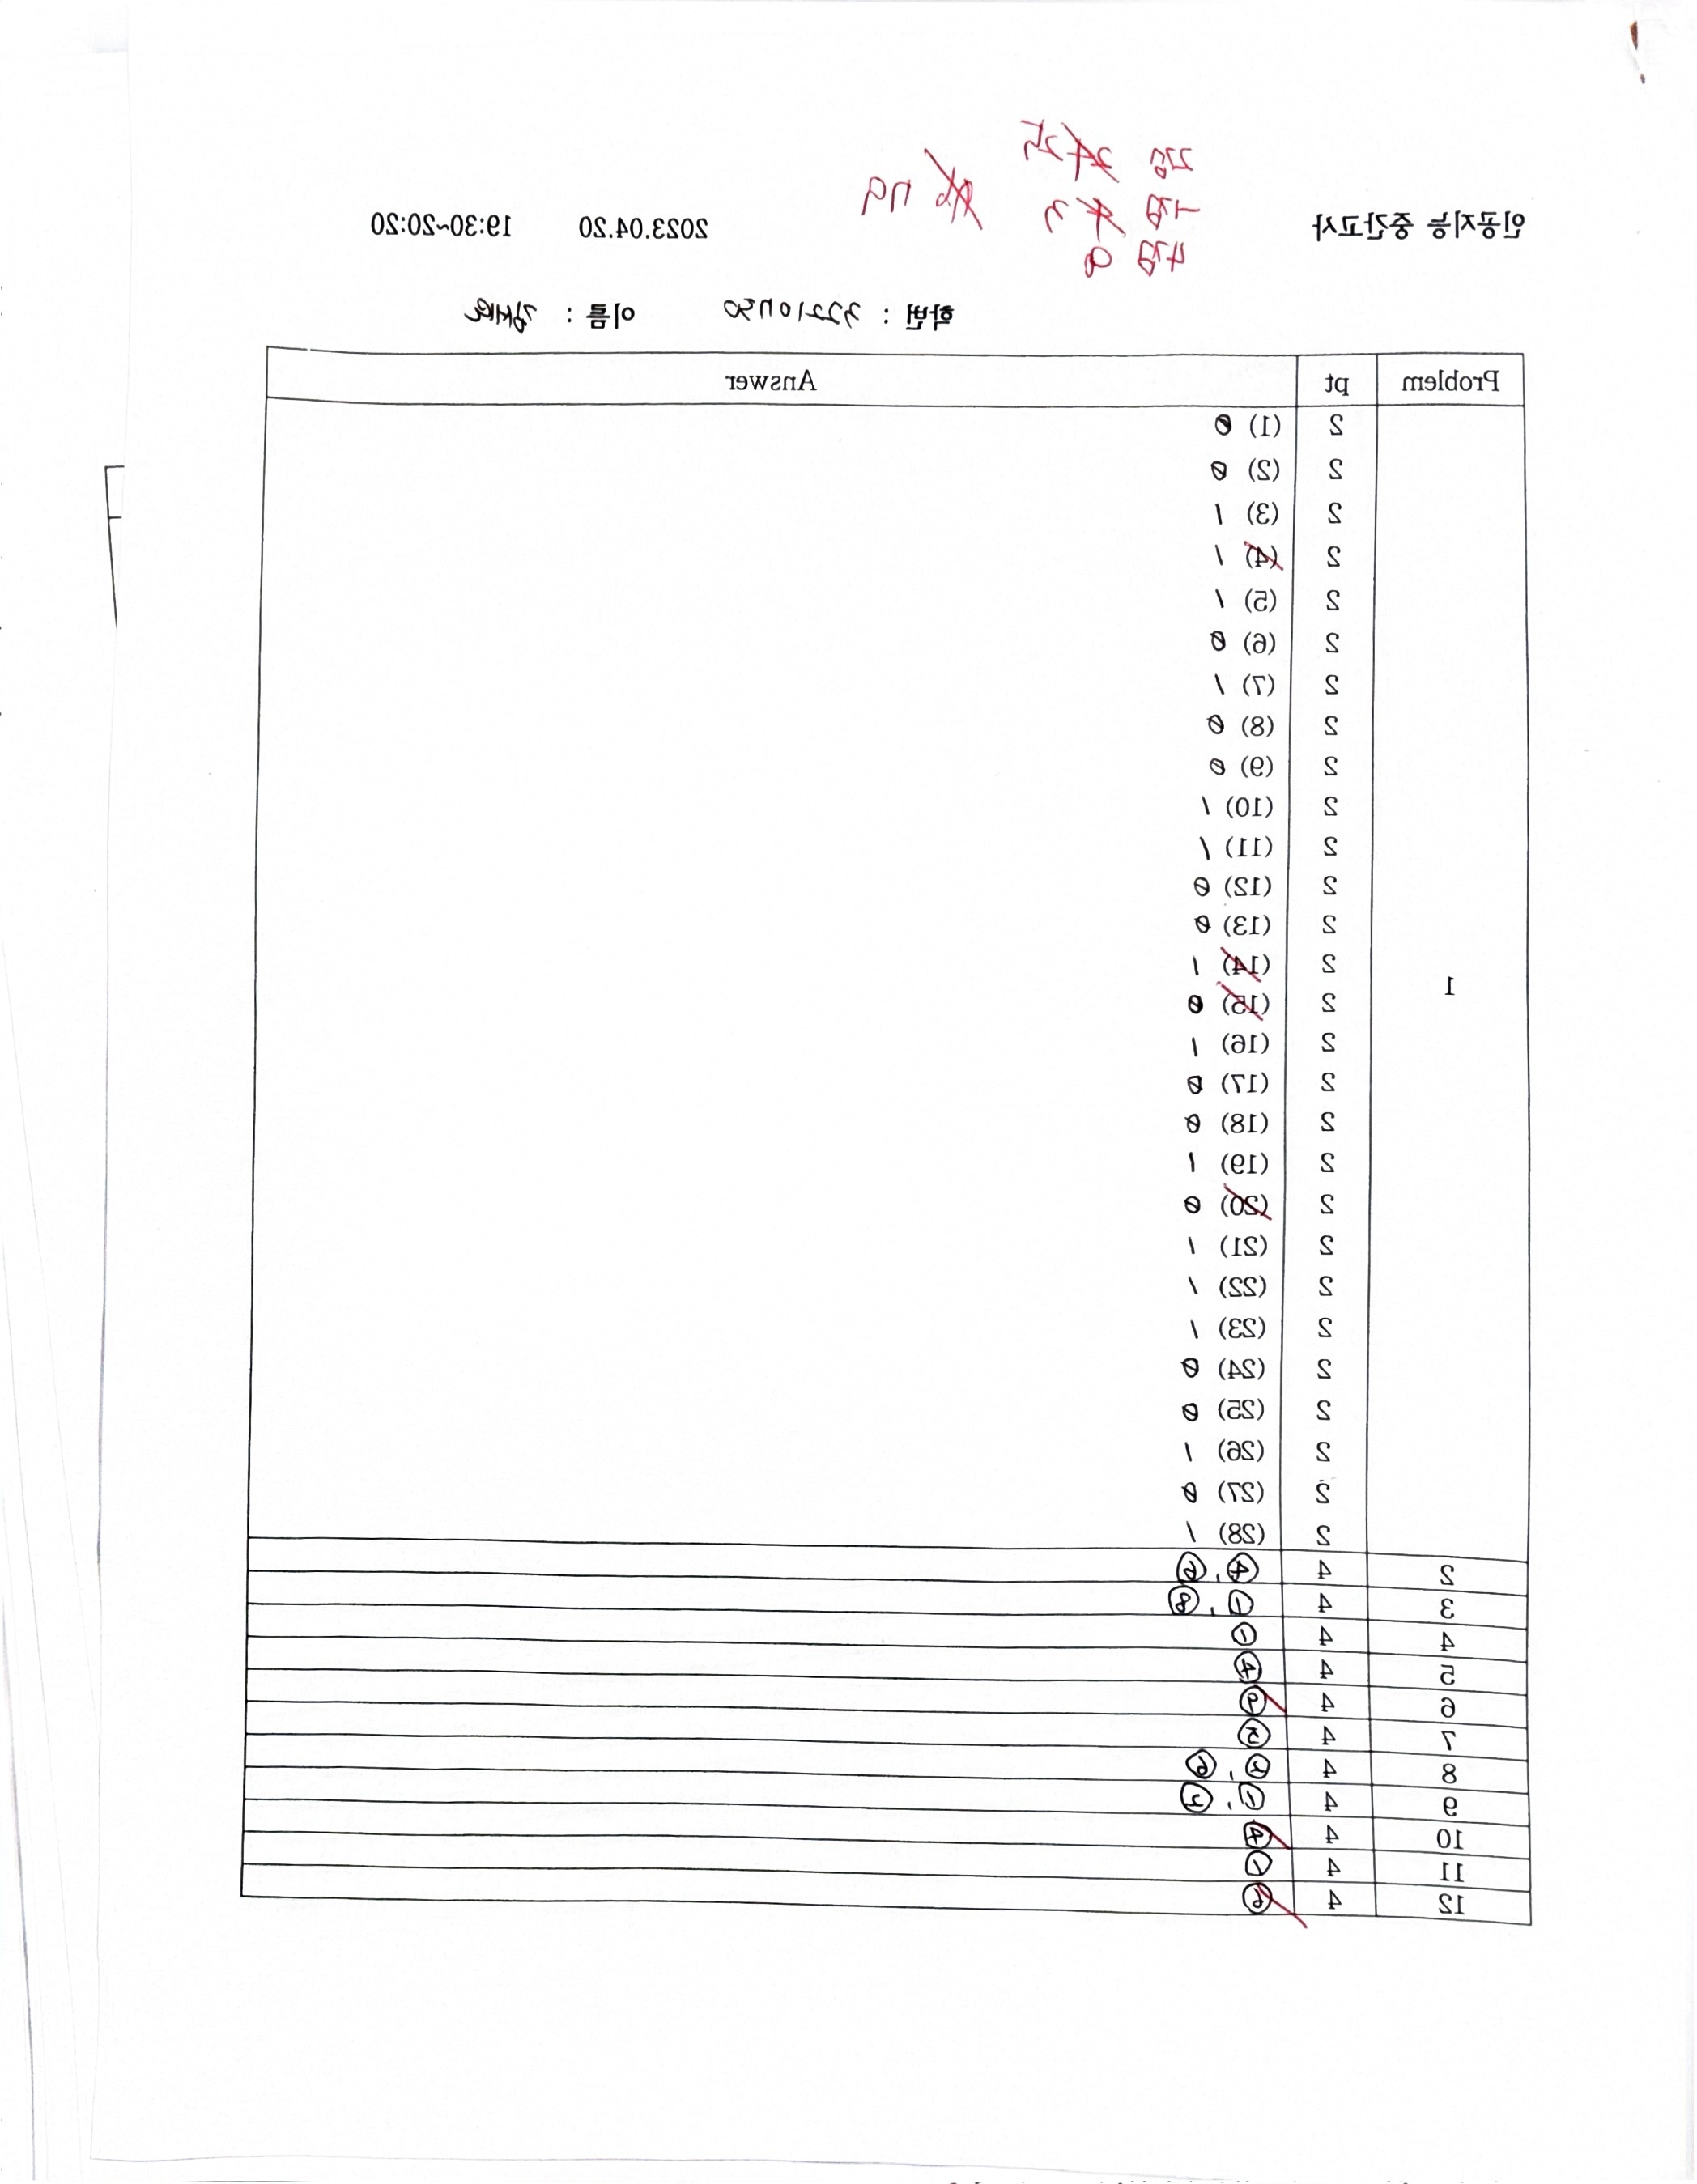 인공지능 중간고사 2023.04.20 19:30~20:20
2점
1점 3
4점
79
학번 : 이름 :
Problem pt Answer
1
2 (1) 0
2 (2) 0
2 (3) 1
2 (4) 1
2 (5) 1
2 (6) 0
2 (7) 1
2 (8) 0
2 (9) 0
2 (10) 1
2 (11) 1
2 (12) 0
2 (13) 0
2 (14) 1
2 (15) 0
2 (16) 1
2 (17) 0
2 (18) 0
2 (19) 1
2 (20) 0
2 (21) 1
2 (22) 1
2 (23) 1
2 (24) 0
2 (25) 0
2 (26) 1
2 (27) 0
2 (28) 1
2 4 ④, ⑥
3 4 ①, ⑧
4 4 ①
5 4 ④
6 4 ⑨
7 4 ⑤
8 4 ③, ⑥
9 4 ①, ③
10 4 ④
11 4 ①
12 4 ⑥